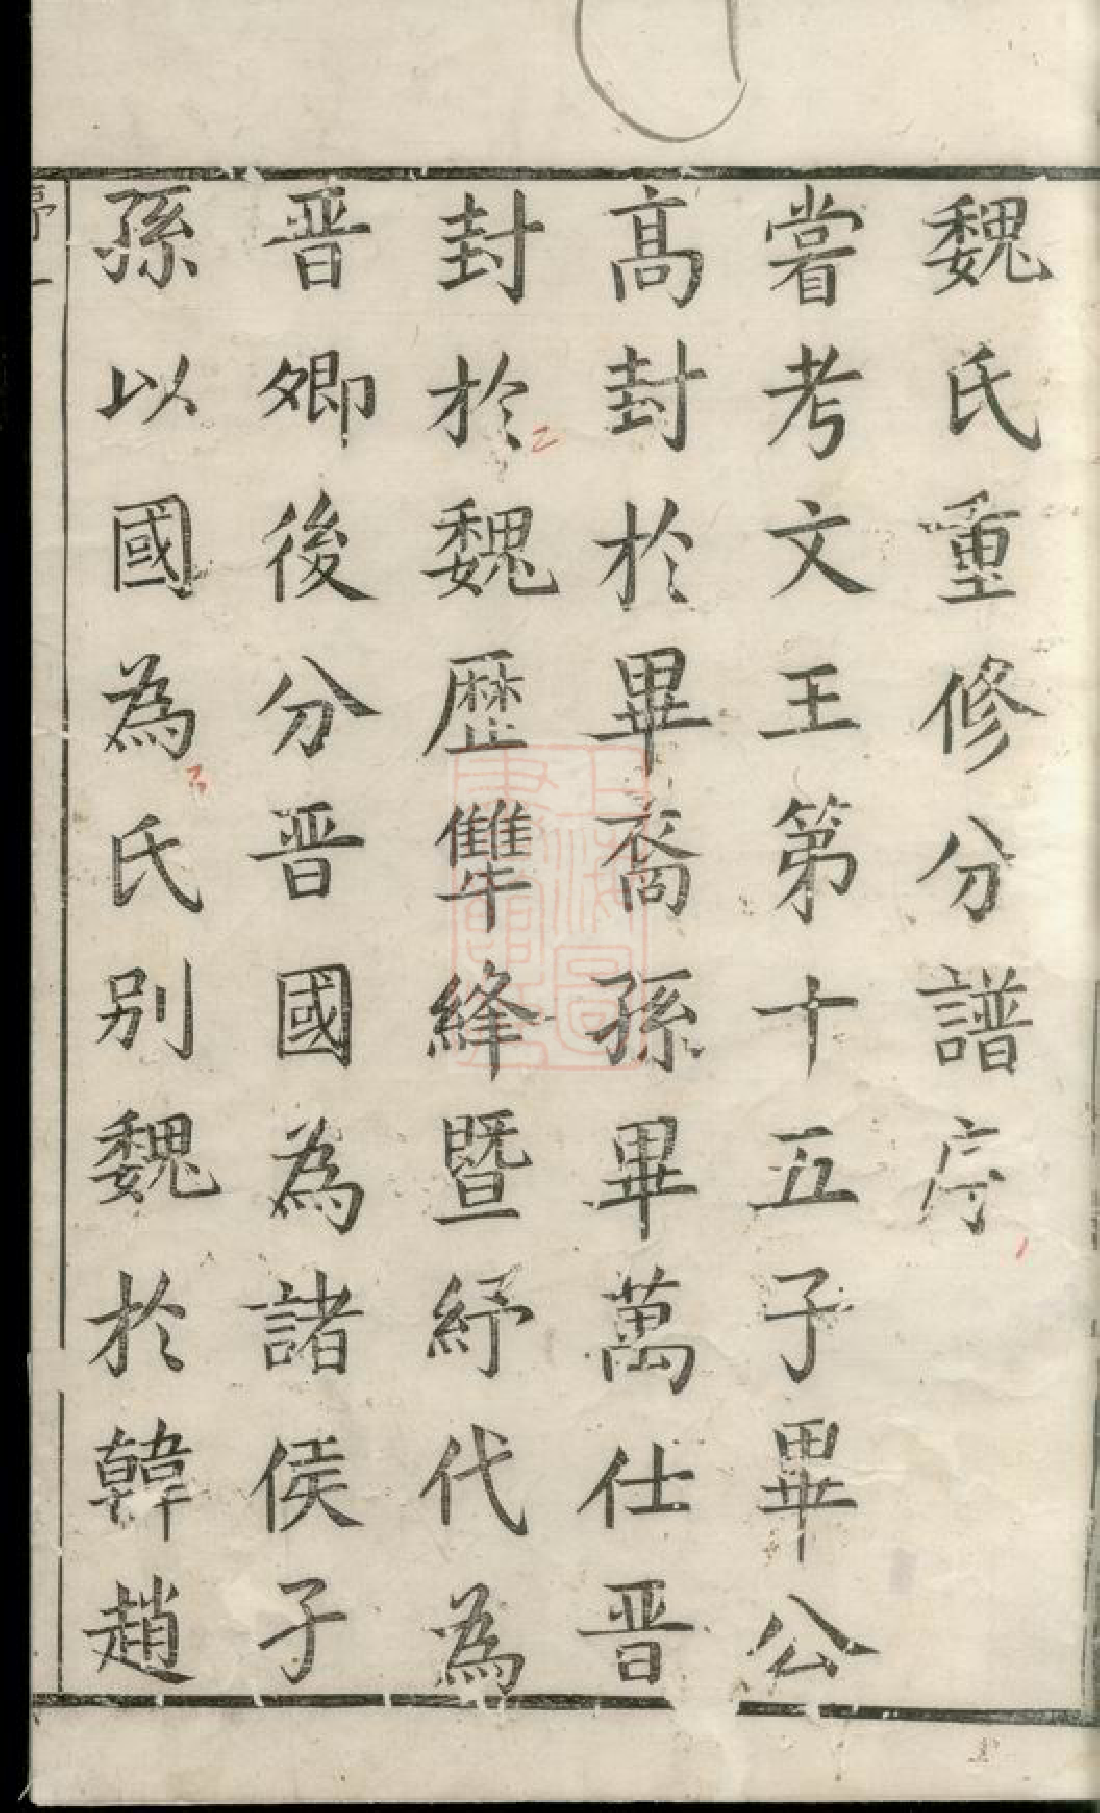 魏氏重修分譜序
嘗考文王第十五子畢公
髙封於畢裔孫畢萬仕晋
封於魏歷犨絳暨紓代為
晋卿後分晋國為諸侯子
孫以國為氏别魏於韓趙